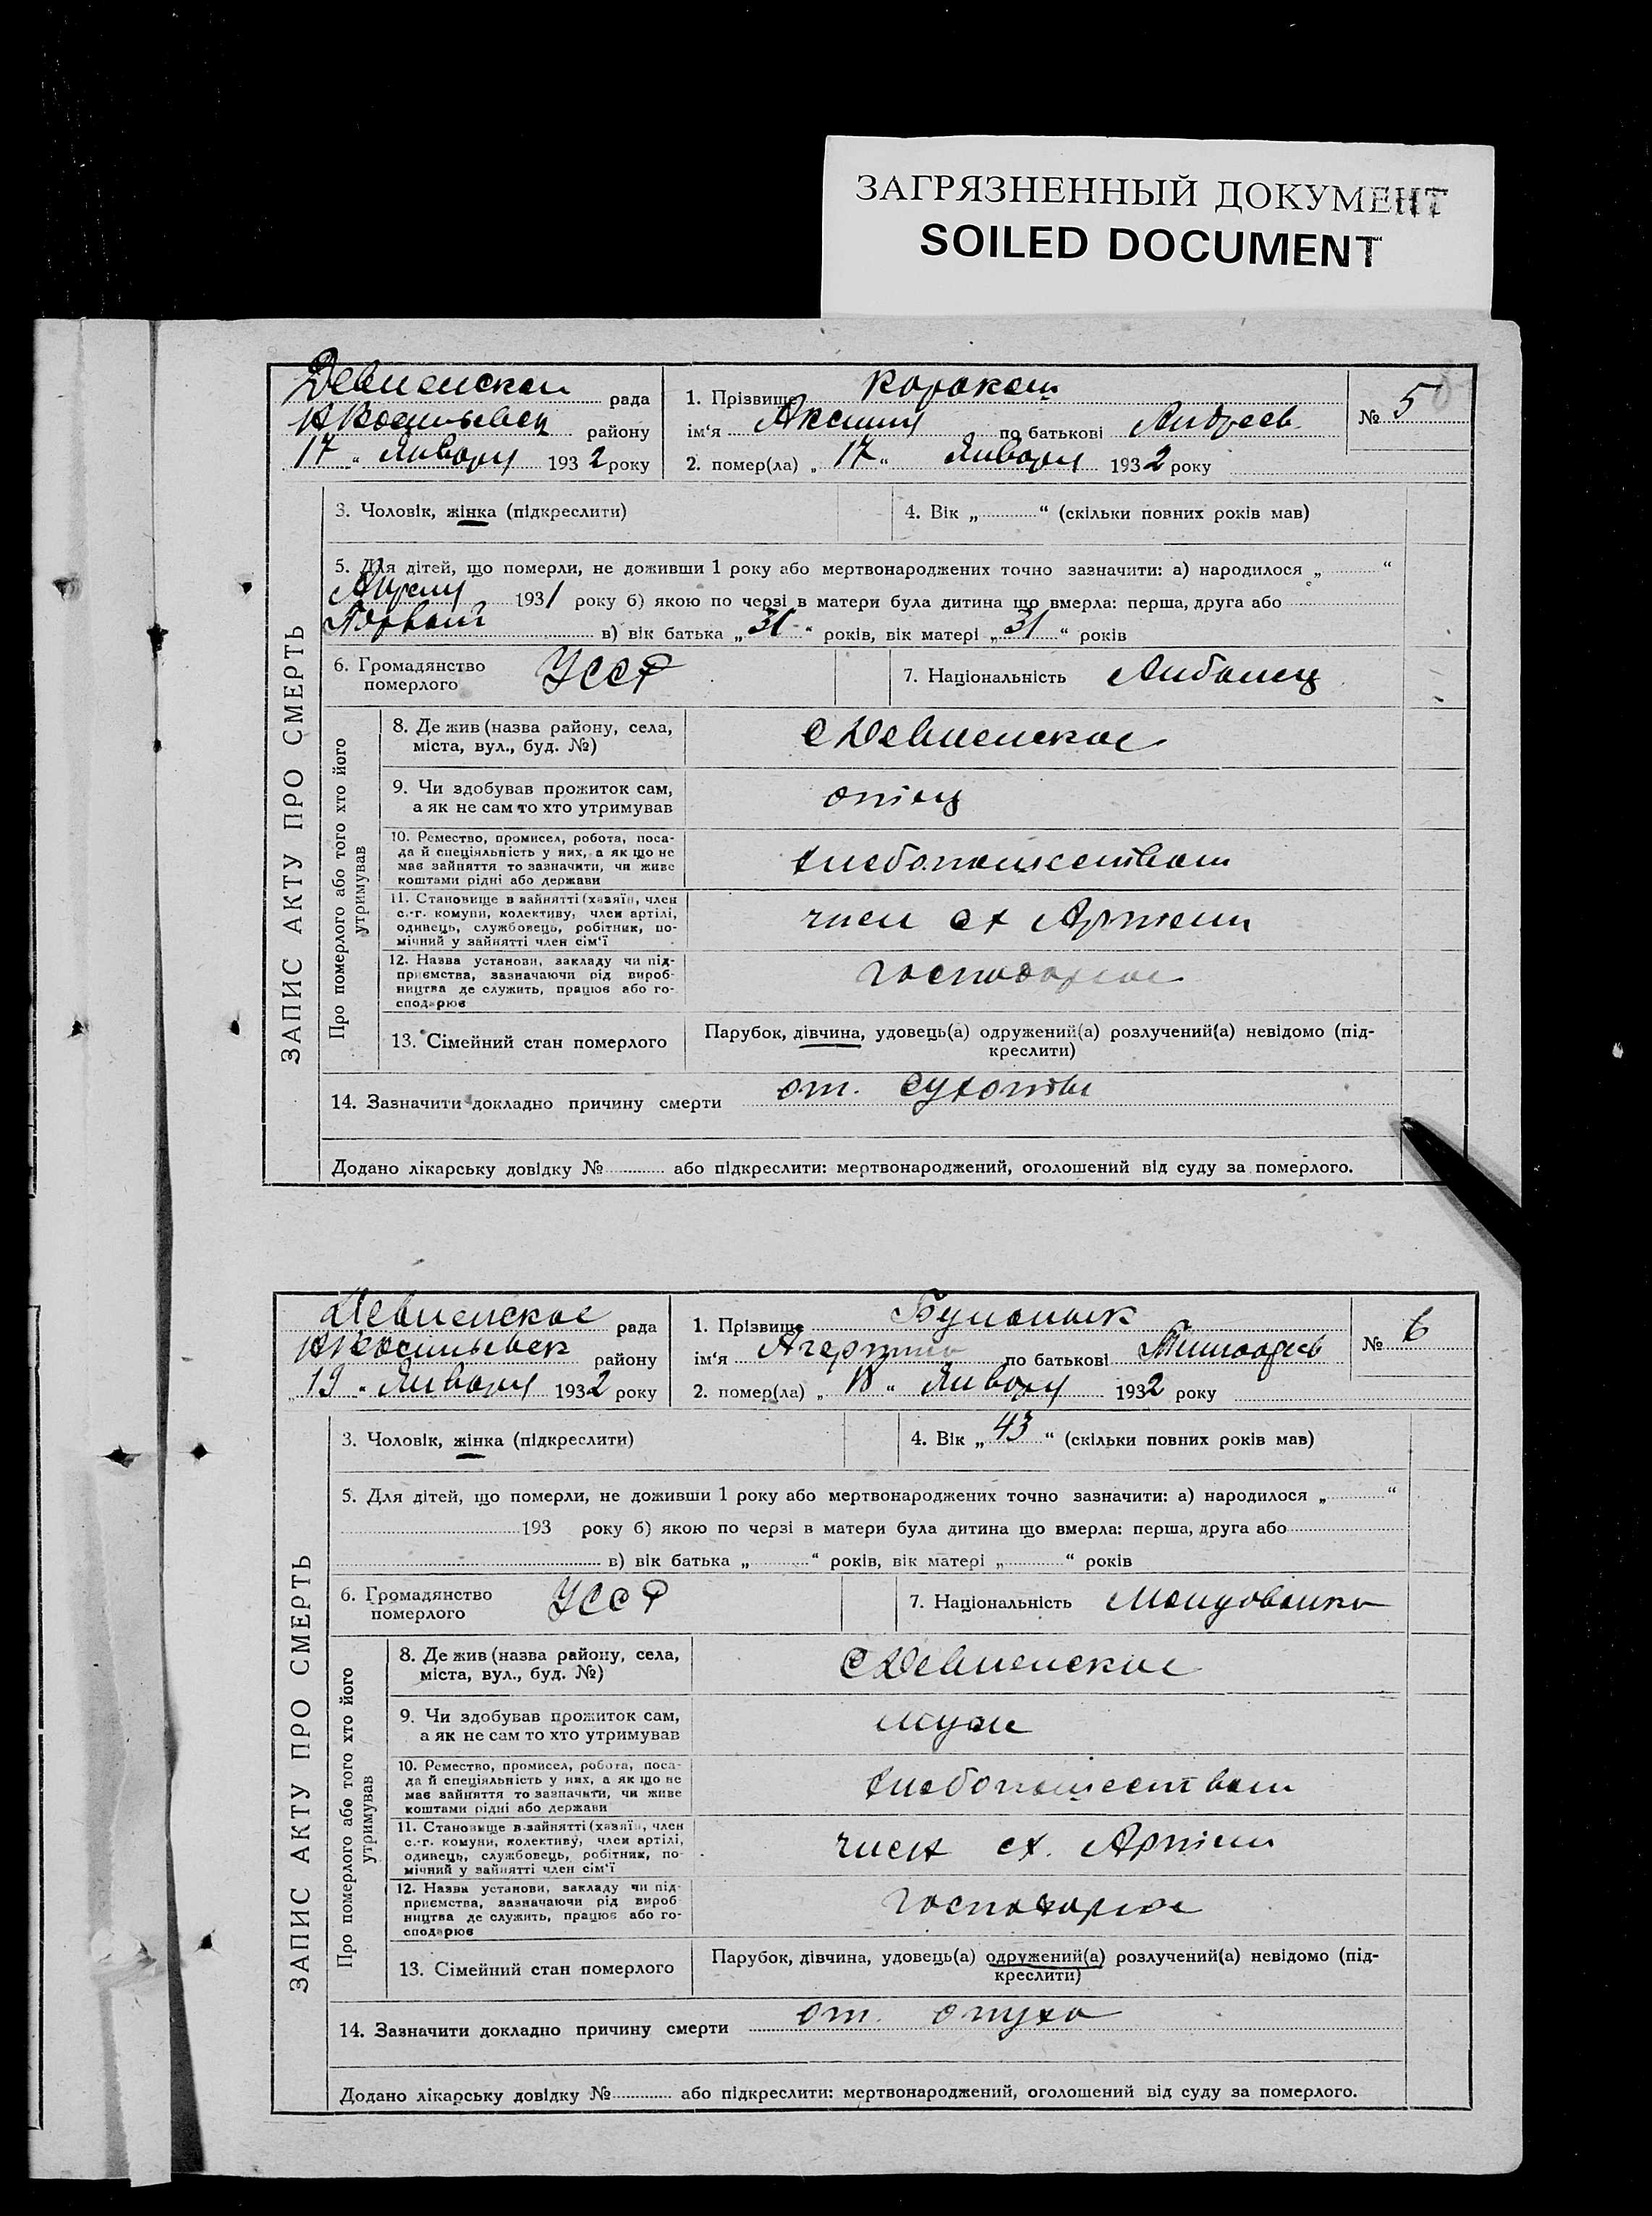 ЗАГРЯЗНЕННЫЙ ДОКУМЕНТ
SOILED DOCUMENT
рада
району
17 „ Января 1932 року
1. Прізвище
ім‘я Аксиния по батькові Андреев
2. помер(ла) „ 17 “ Января 1932 року
№ 5
ЗАПИС АКТУ ПРО СМЕРТЬ
3. Чоловік, жінка (підкреслити)
4. Вік „ “ (скільки повних років мав)
5. Для дітей, що померли, не доживши 1 року або мертвонароджених точно зазначити: а) народилося „ “
1931 року б) якою по черзі в матери була дитина що вмерла: перша, друга або
в) вік батька „ 31 “ років, вік матері „ 31 “ років
6. Громадянство
померлого
УССР
7. Національність
Про померлого або того хто його
утримував
8. Де жив (назва району, села,
міста, вул., буд. №)
9. Чи здобував прожиток сам,
а як не сам то хто утримував
отец
10. Ремество, промисел, робота, поса-
да й спеціяльність у них, а як що не
має зайняття то зазначити, чи живе
коштами рідні або держави
11. Становище в зайнятті (хазяїн, член
с.-г. комуни, колективу, член артілі,
одинець, службовець, робітник, по-
мічний у зайнятті член сім‘ї
член сх Артели
12. Назва установи, закладу чи під-
приємства, зазначаючи рід вироб-
ництва де служить, працює або го-
сподарює
13. Сімейний стан померлого
Парубок, дівчина, удовець(а) одружений(а) розлучений(а) невідомо (під-
креслити)
14. Зазначити докладно причину смерти от. сухоты
Додано лікарську довідку № або підкреслити: мертвонароджений, оголошений від суду за померлого.
рада
району
19 „ Января 1932 року
1. Прізвище
ім‘я по батькові
2. помер(ла) „ 18 “ Января 1932 року
№ 6
ЗАПИС АКТУ ПРО СМЕРТЬ
3. Чоловік, жінка (підкреслити)
4. Вік „ 43 “ (скільки повних років мав)
5. Для дітей, що померли, не доживши 1 року або мертвонароджених точно зазначити: а) народилося „ “
193 року б) якою по черзі в матери була дитина що вмерла: перша, друга або
в) вік батька „ “ років, вік матері „ “ років
6. Громадянство
померлого
УССР
7. Національність
Про померлого або того хто його
утримував
8. Де жив (назва району, села,
міста, вул., буд. №)
9. Чи здобував прожиток сам,
а як не сам то хто утримував
муж
10. Ремество, промисел, робота, поса-
да й спеціяльність у них, а як що не
має зайняття то зазначити, чи живе
коштами рідні або держави
11. Становище в зайнятті (хазяїн, член
с.-г. комуни, колективу, член артілі,
одинець, службовець, робітник, по-
мічний у зайнятті член сім‘ї
член сх. Артели
12. Назва установи, закладу чи під-
приємства, зазначаючи рід вироб-
ництва де служить, працює або го-
сподарює
13. Сімейний стан померлого
Парубок, дівчина, удовець(а) одружений(а) розлучений(а) невідомо (під-
креслити)
14. Зазначити докладно причину смерти от.
Додано лікарську довідку № або підкреслити: мертвонароджений, оголошений від суду за померлого.